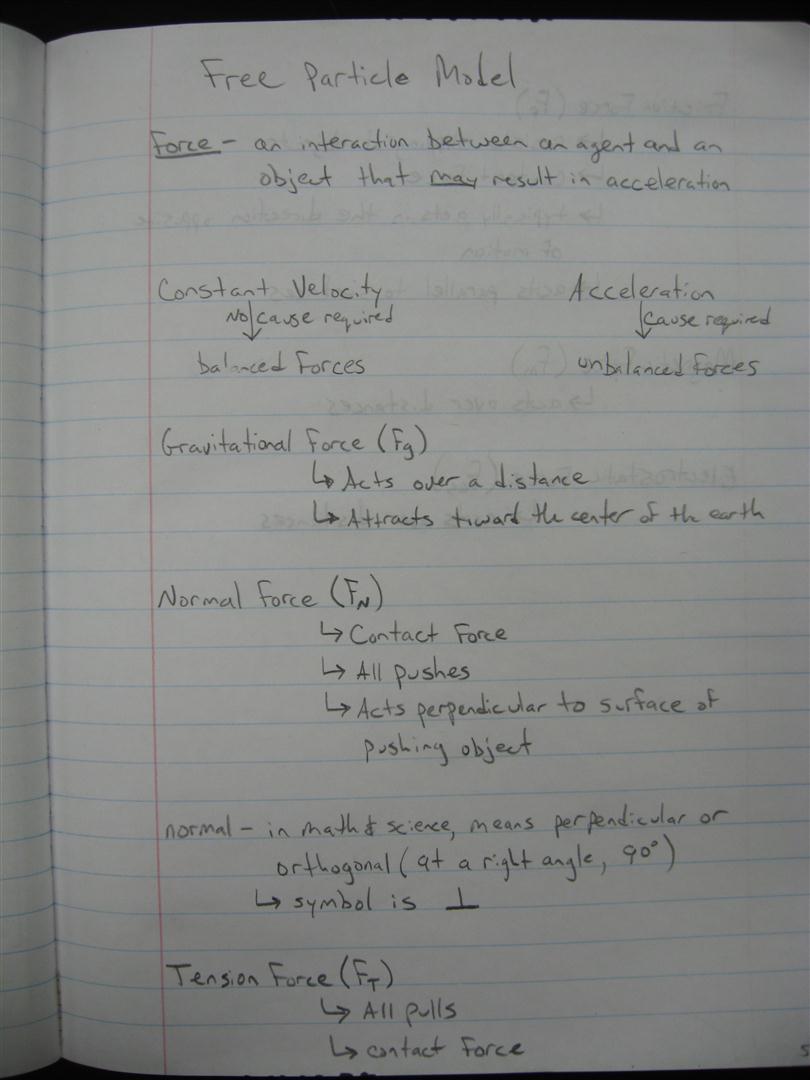 Free Particle Model
Force - an interaction between an agent and an
object that may result in acceleration
Constant Velocity Acceleration
No cause required cause required
balanced Forces unbalanced forces
Gravitational Force (Fg)
↳ Acts over a distance
↳ Attracts toward the center of the earth
Normal Force (FN)
↳ Contact Force
↳ All pushes
↳ Acts perpendicular to surface of
pushing object
normal - in math & science, means perpendicular or
orthogonal (at a right angle, 90°)
↳ symbol is ⊥
Tension Force (FT)
↳ All pulls
↳ contact Force